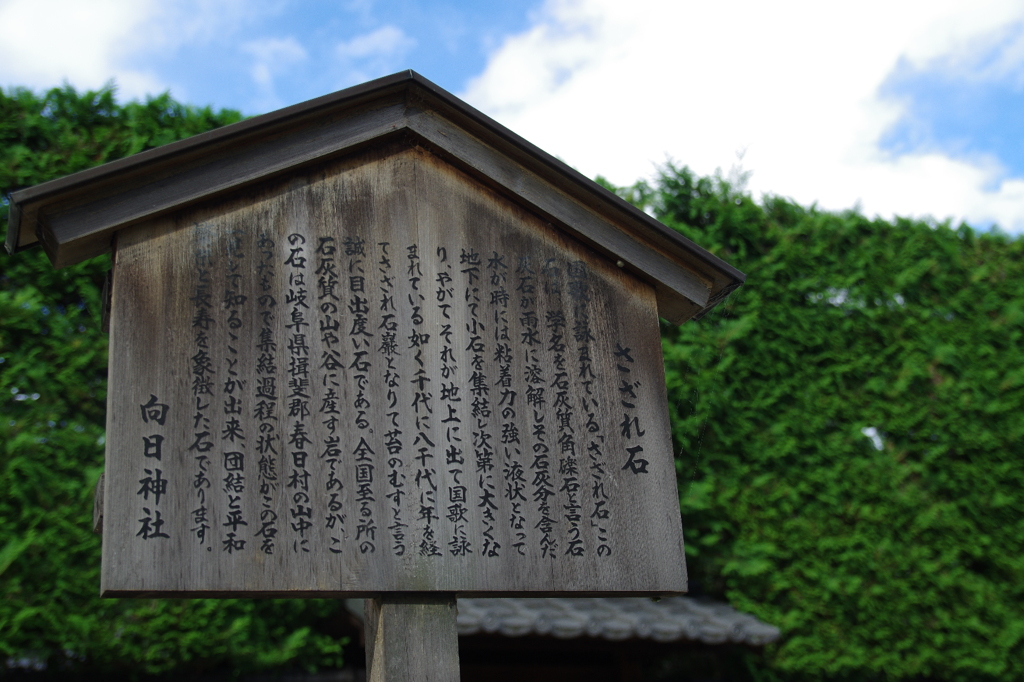 さざれ石
国歌に詠まれている「さざれ石」この
石は、学名を石灰質角礫石と言う石
灰石が雨水に溶解しその石灰分を含んだ
水が時には粘着力の強い液状となって
地下にて小石を集結し次第に大きくな
り、やがてそれが地上に出て国歌に詠
まれている如く千代に八千代に年を経
てさざれ石巌となりて苔のむすと言う
誠に目出度い石である。全国至る所の
石灰質の山や谷に産す岩であるが、こ
の石は岐阜県揖斐郡春日村の山中に
あったもので集結過程の状態がこの石を
見て知ることが出来、団結と平和
と長寿を象徴した石であります。
向日神社